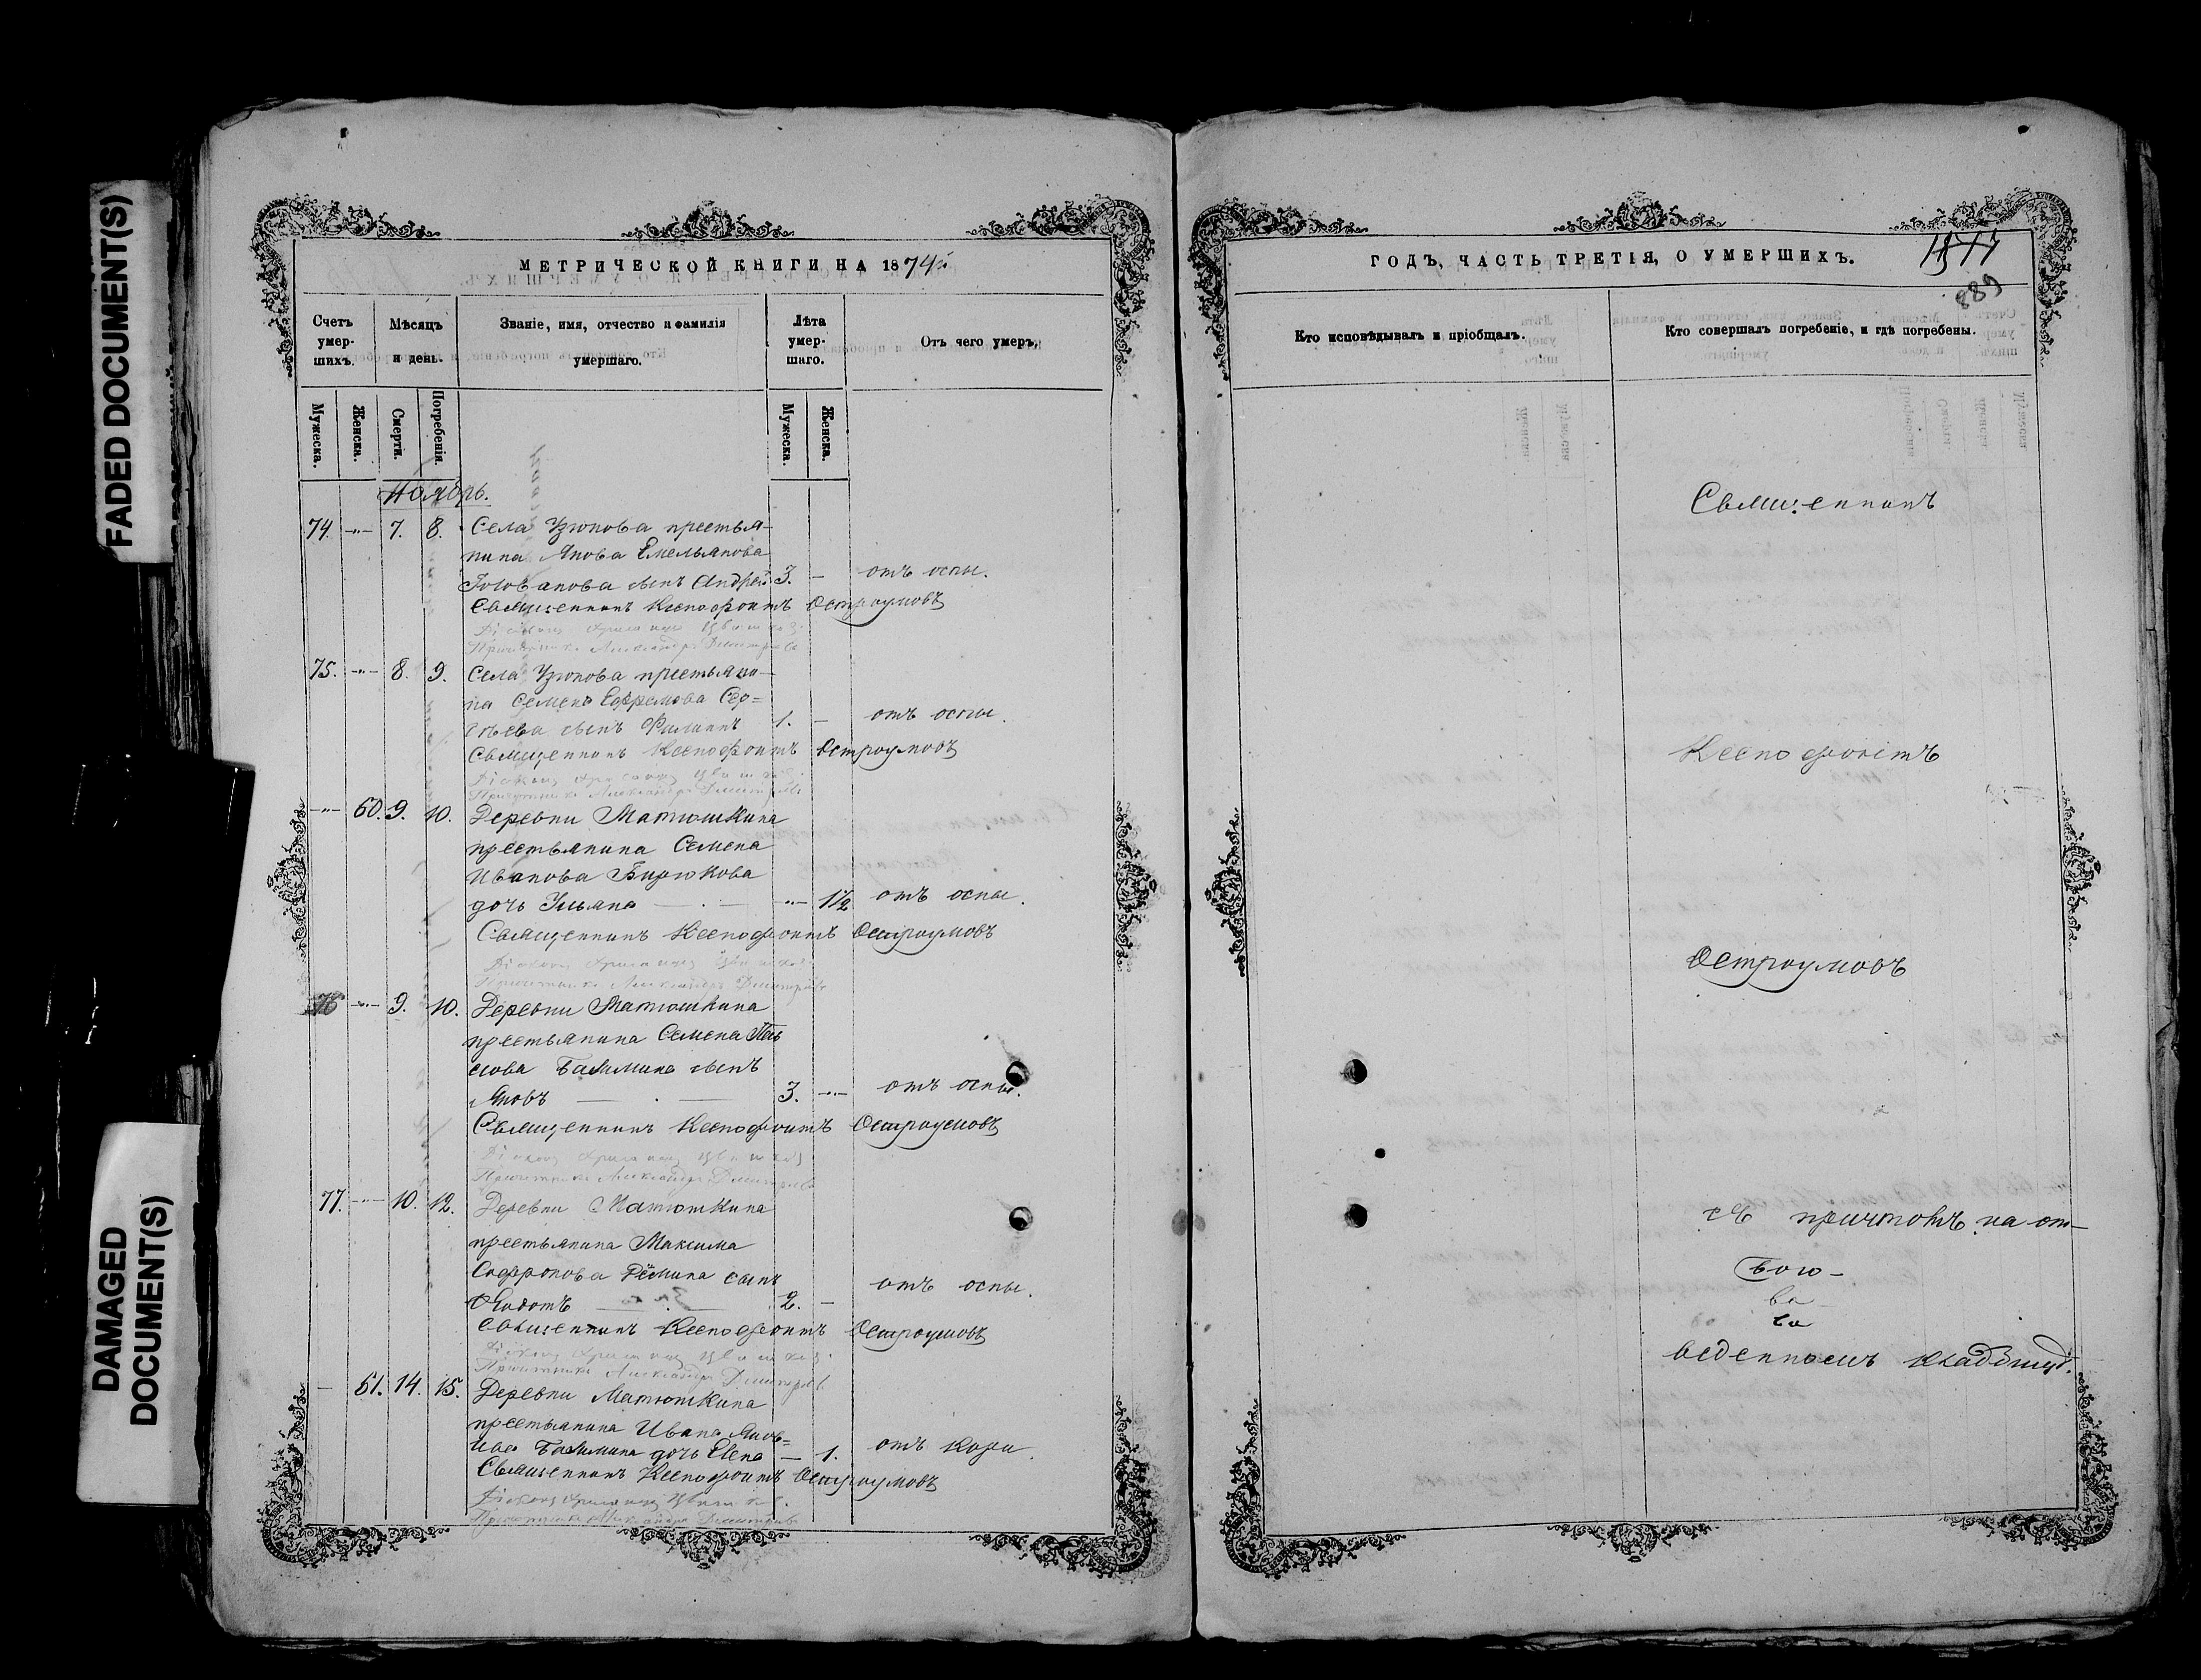 FADED DOCUMENT(S)
DAMAGED
DOCUMENT(S)
МЕТРИЧЕСКОЙ КНИГИ НА 1874й
Счетъ умер-шихъ.
Мѣсяцъ и день.
Званіе, имя, отчество и фамилія умершаго.
Лѣта умер-шаго.
Отъ чего умеръ.
Мужеска.
Женска.
Смерти.
Погребенія.
Мужеска.
Женска.
Ноябрь.
74. -"- 7. 8. Села Узюкова крестья-
нина Якова Емельянова
Голованова сынъ Андрей 3. - отъ оспы.
Священникъ Ксенофонтъ Остроумовъ
Діаконъ
Причетникъ Александръ Димитріевъ
75. -"- 8. 9. Села Узюкова крестьяни-
на Семена Ефремова Сер-
гѣева сынъ Филиппъ 1. - отъ оспы.
Священникъ Ксенофонтъ Остроумовъ
Діаконъ
Причетникъ Александръ Димитріевъ
-"- 60. 9. 10. Деревни Матюшкина
крестьянина Семена
Иванова Бирюкова
дочь Ульяна -"- 1½ отъ оспы.
Священникъ Ксенофонтъ Остроумовъ
Діаконъ
Причетникъ Александръ Димитріевъ
76 -"- 9. 10. Деревни Матюшкина
крестьянина Семена
сынъ
Яковъ 3. -"- отъ оспы.
Священникъ Ксенофонтъ Остроумовъ
Діаконъ
Причетникъ Александръ Димитріевъ
77. -"- 10. 12. Деревни Матюшкина
крестьянина Максима
Софронова Дёмина сынъ
Ѳедотъ 2. - отъ оспы.
Священникъ Ксенофонтъ Остроумовъ
Діаконъ
Причетникъ Александръ Димитріевъ
- 61. 14. 15. Деревни Матюшкина
крестьянина Ивана Яков-
дочь Елена - 1. отъ кори.
Священникъ Ксенофонтъ Остроумовъ
Діаконъ
Причетникъ Александръ Димитріевъ
ГОДЪ, ЧАСТЬ ТРЕТІЯ, О УМЕРШИХЪ.
889
Кто исповѣдывалъ и пріобщалъ.
Кто совершалъ погребеніе, и гдѣ погребены.
Священникъ
Ксенофонтъ
Остроумовъ
съ причтомъ на от-
веденномъ кладбищѣ.